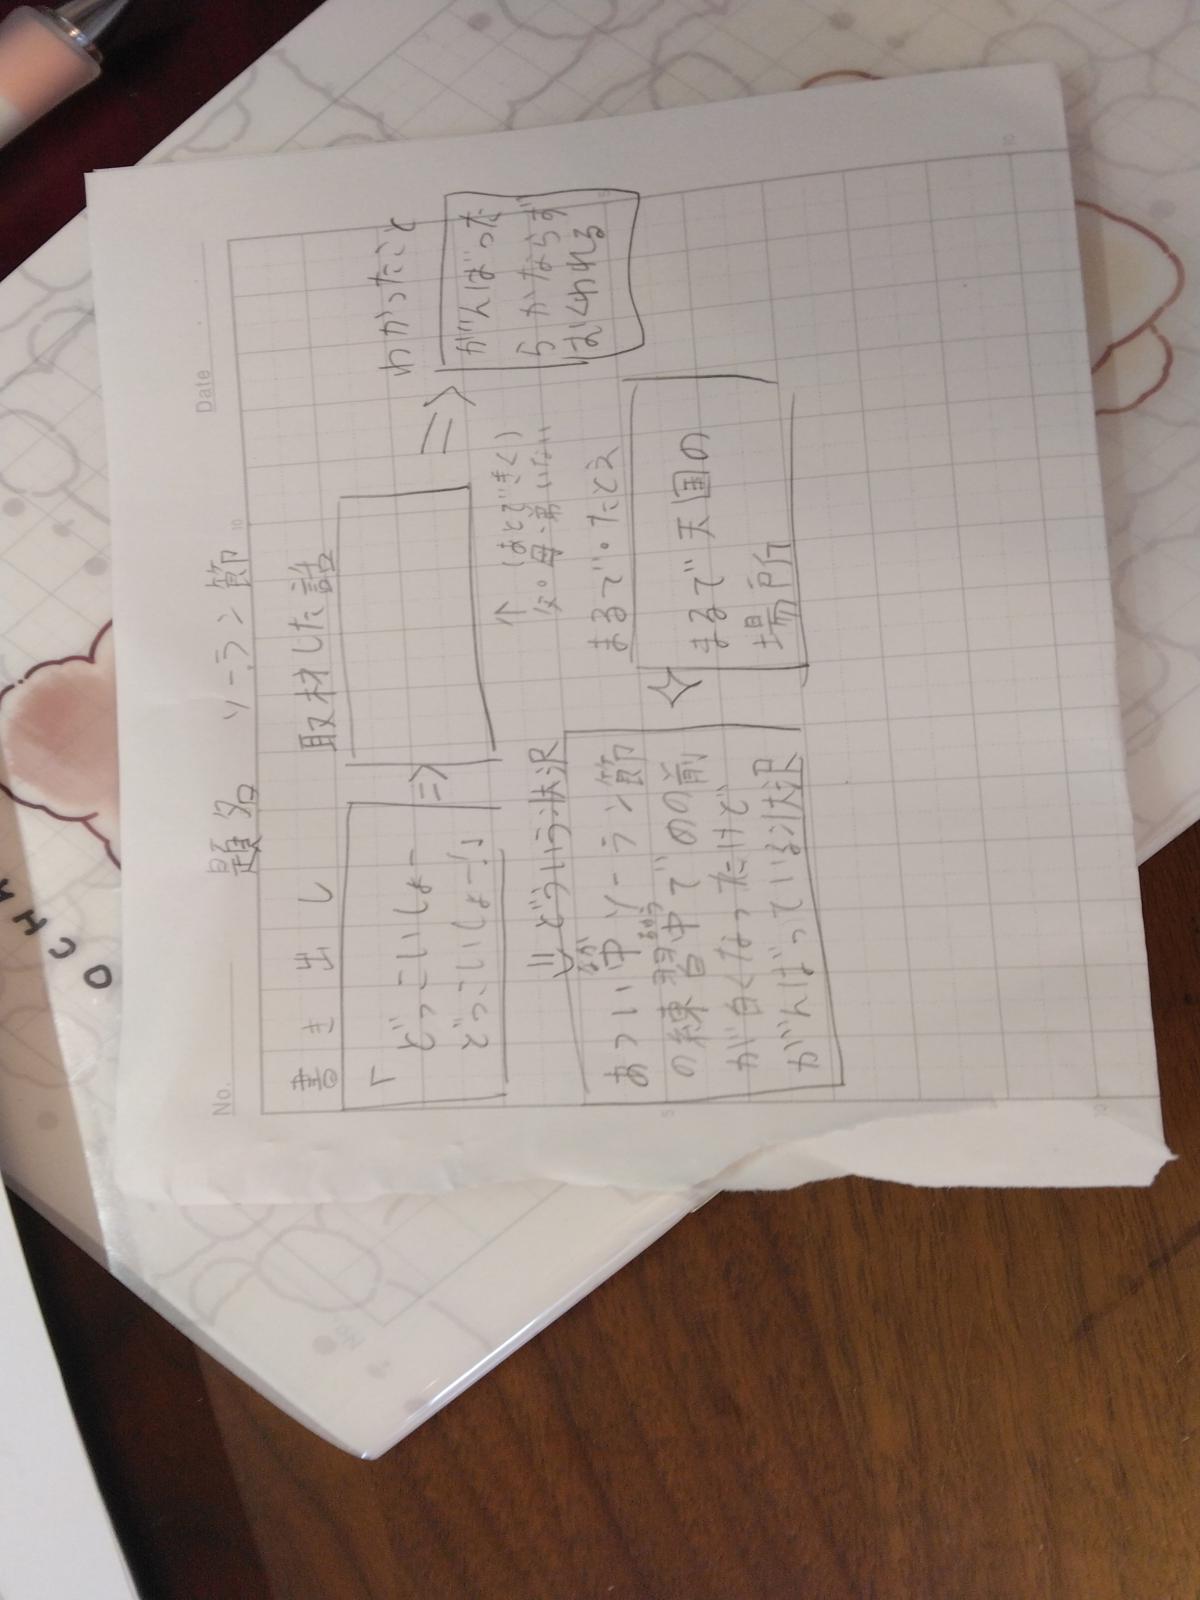 No.
Date
題名 ソーラン節
書き出し
「
どっこいしょー
どっこいしょー!」
⇒
取材した話
↑(あとできく)
父。母、弟いない
⇒
わかったこと
がんばった
らかならず
むくわれる
⇓どういう状況
あつい中ソーラン節
の練習中で めの前
が白くなったけど
がんばっている状況
まるで・たとえ
まるで天国の
場所
10
5
5
10
10
OCHA
No.